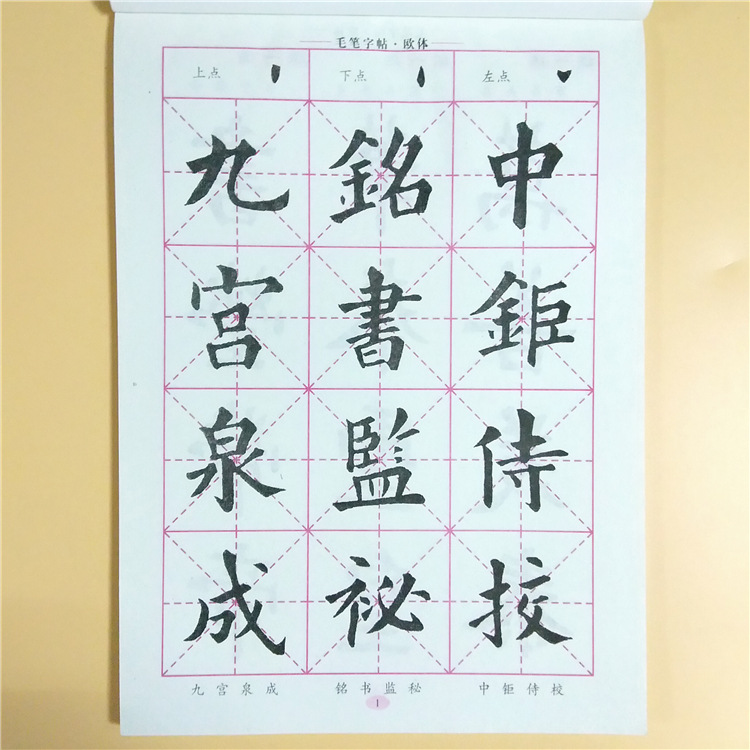 毛笔字帖·欧体
上点 下点 左点
九宫泉成
銘書監祕
中鉅侍挍
九宫泉成 铭书监秘 中钜侍校
1